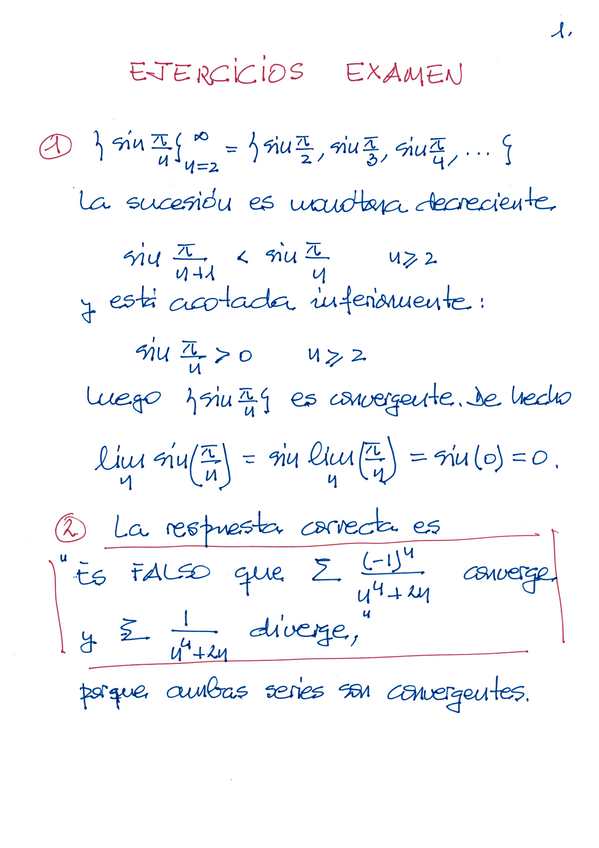 1.
EJERCICIOS EXAMEN
① {sin π/n}_{n=2}^∞ = {sin π/2, sin π/3, sin π/4, ...}
La sucesión es monótona decreciente
sin π/(n+1) < sin π/n n ≥ 2
y está acotada inferiormente:
sin π/n > 0 n ≥ 2
Luego {sin π/n} es convergente. De hecho
lim_n sin(π/n) = sin lim_n (π/n) = sin(0) = 0.
② La respuesta correcta es
"Es FALSO que Σ (-1)^n/(n^4+2n) converge
y Σ 1/(n^4+2n) diverge,"
porque ambas series son convergentes.